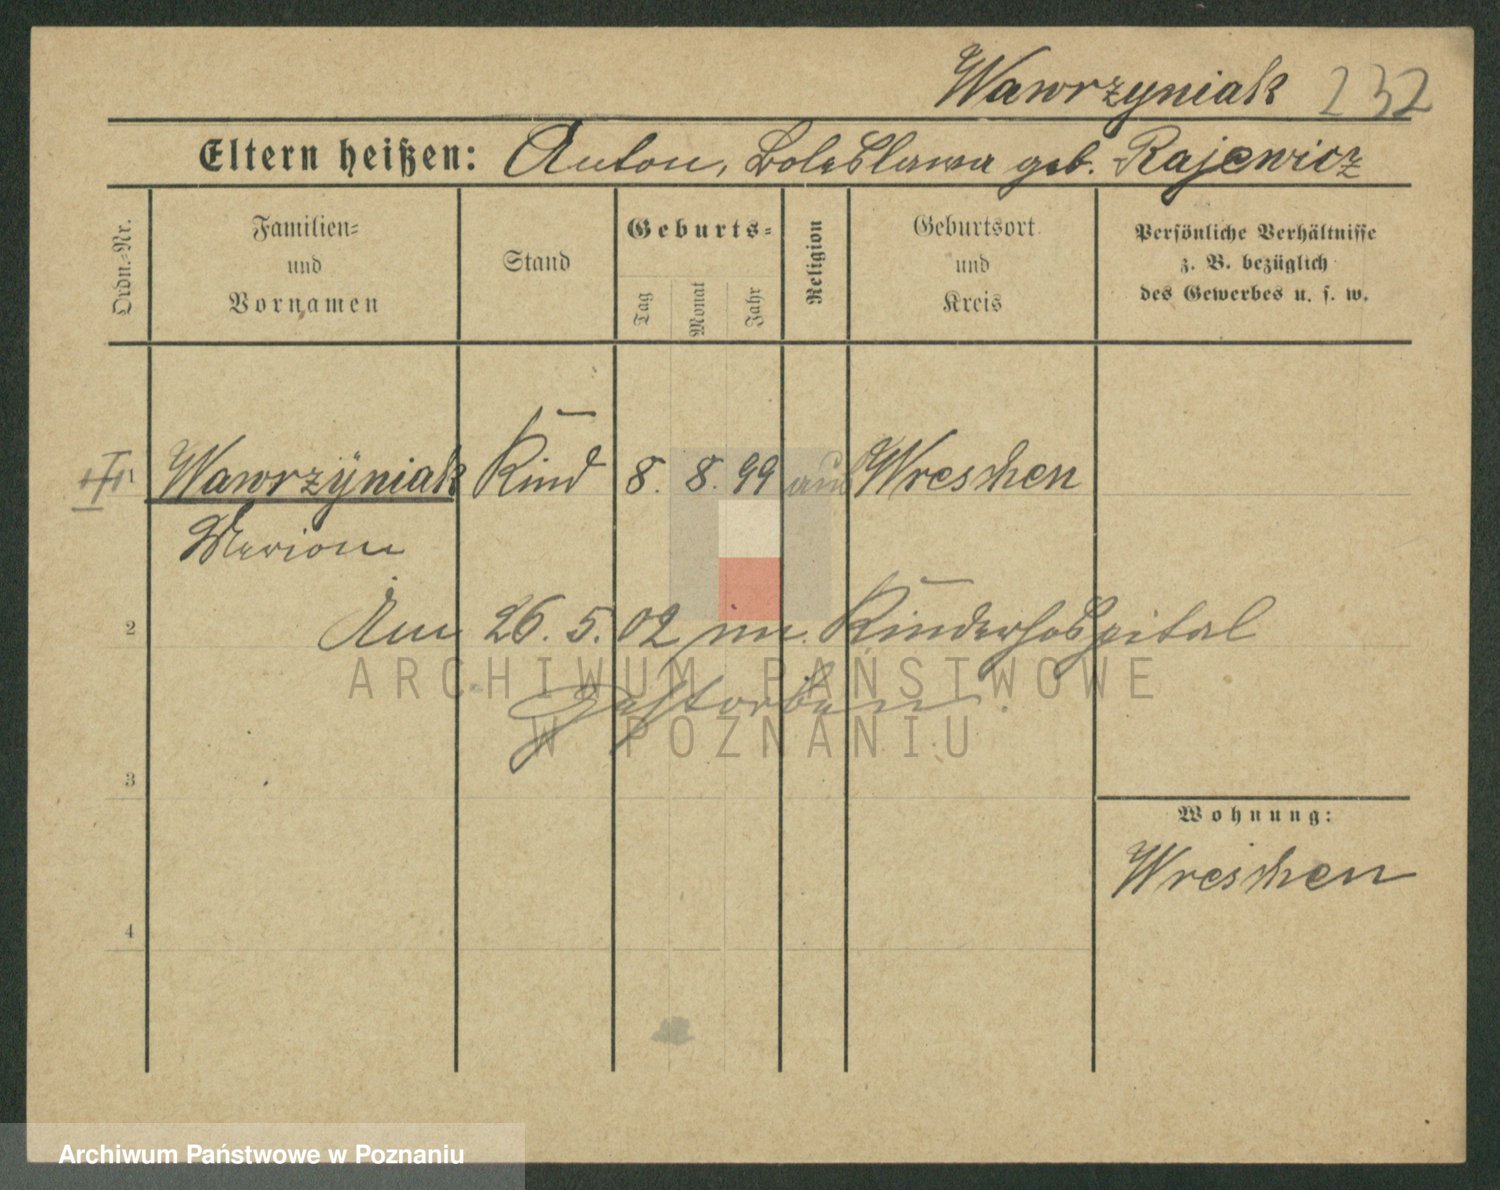 Wawrzyniak 232
Eltern heißen: Anton, Boleslawa geb. Rajewicz
Ordn.-Nr.
Familien-
und
Vornamen
Stand
Geburts-
Tag
Monat
Jahr
Religion
Geburtsort
und
Kreis
Persönliche Verhältnisse
z. B. bezüglich
des Gewerbes u. s. w.
1 Wawrzyniak Kind 8. 8. 99 Wreschen
2
Am 26. 5. 02 im Kinderhospital
gestorben.
ARCHIWUM PAŃSTWOWE
W POZNANIU
3
Wohnung:
Wreschen
4
Archiwum Państwowe w Poznaniu